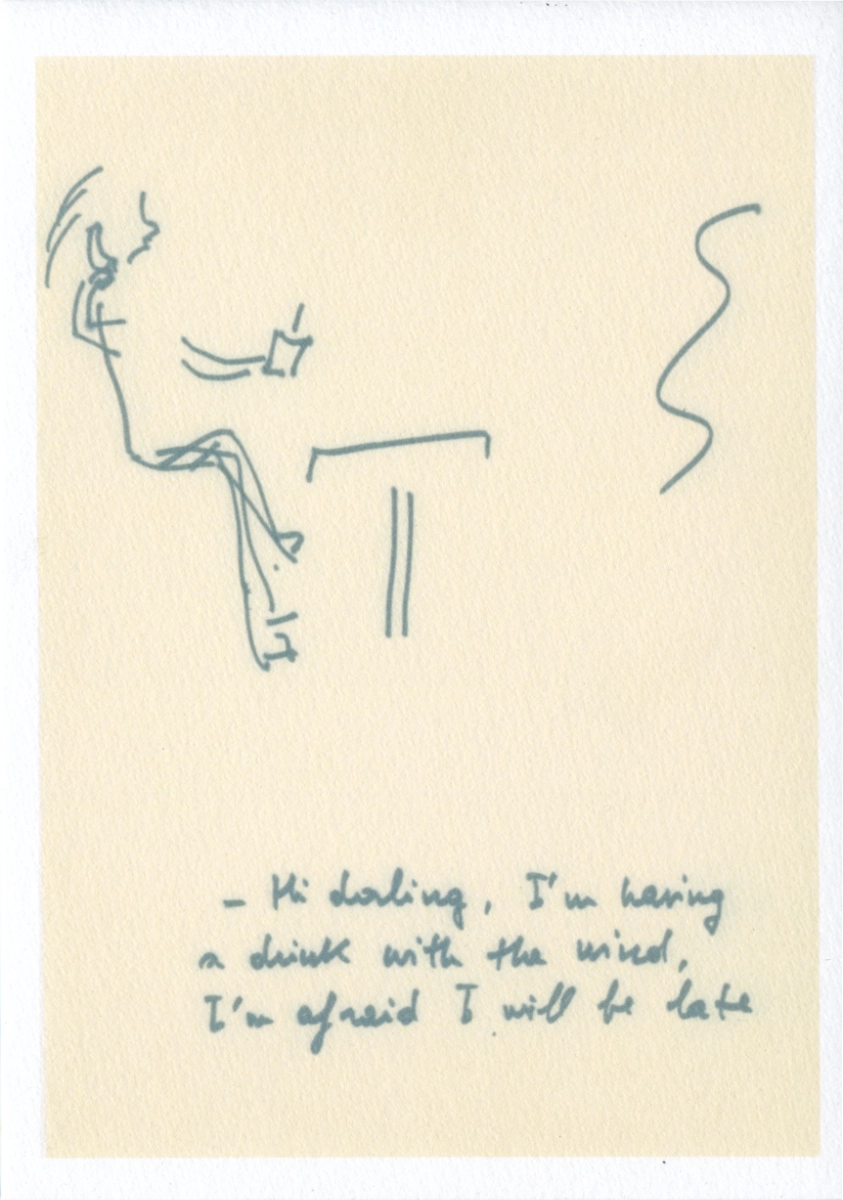 – Hi darling, I'm having
a drink with the wind,
I'm afraid I will be late